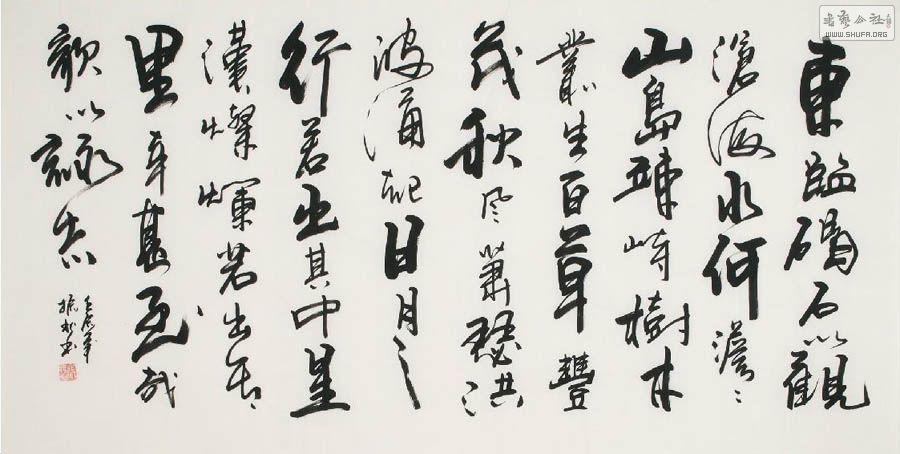 東臨碣石以觀
滄海水何澹〻
山島竦峙樹木
叢生百草豐
茂秋風蕭瑟洪
波涌起日月之
行若出其中星
漢燦爛若出其
里幸甚至哉
歌以詠志
书艺公社
WWW.SHUFA.ORG